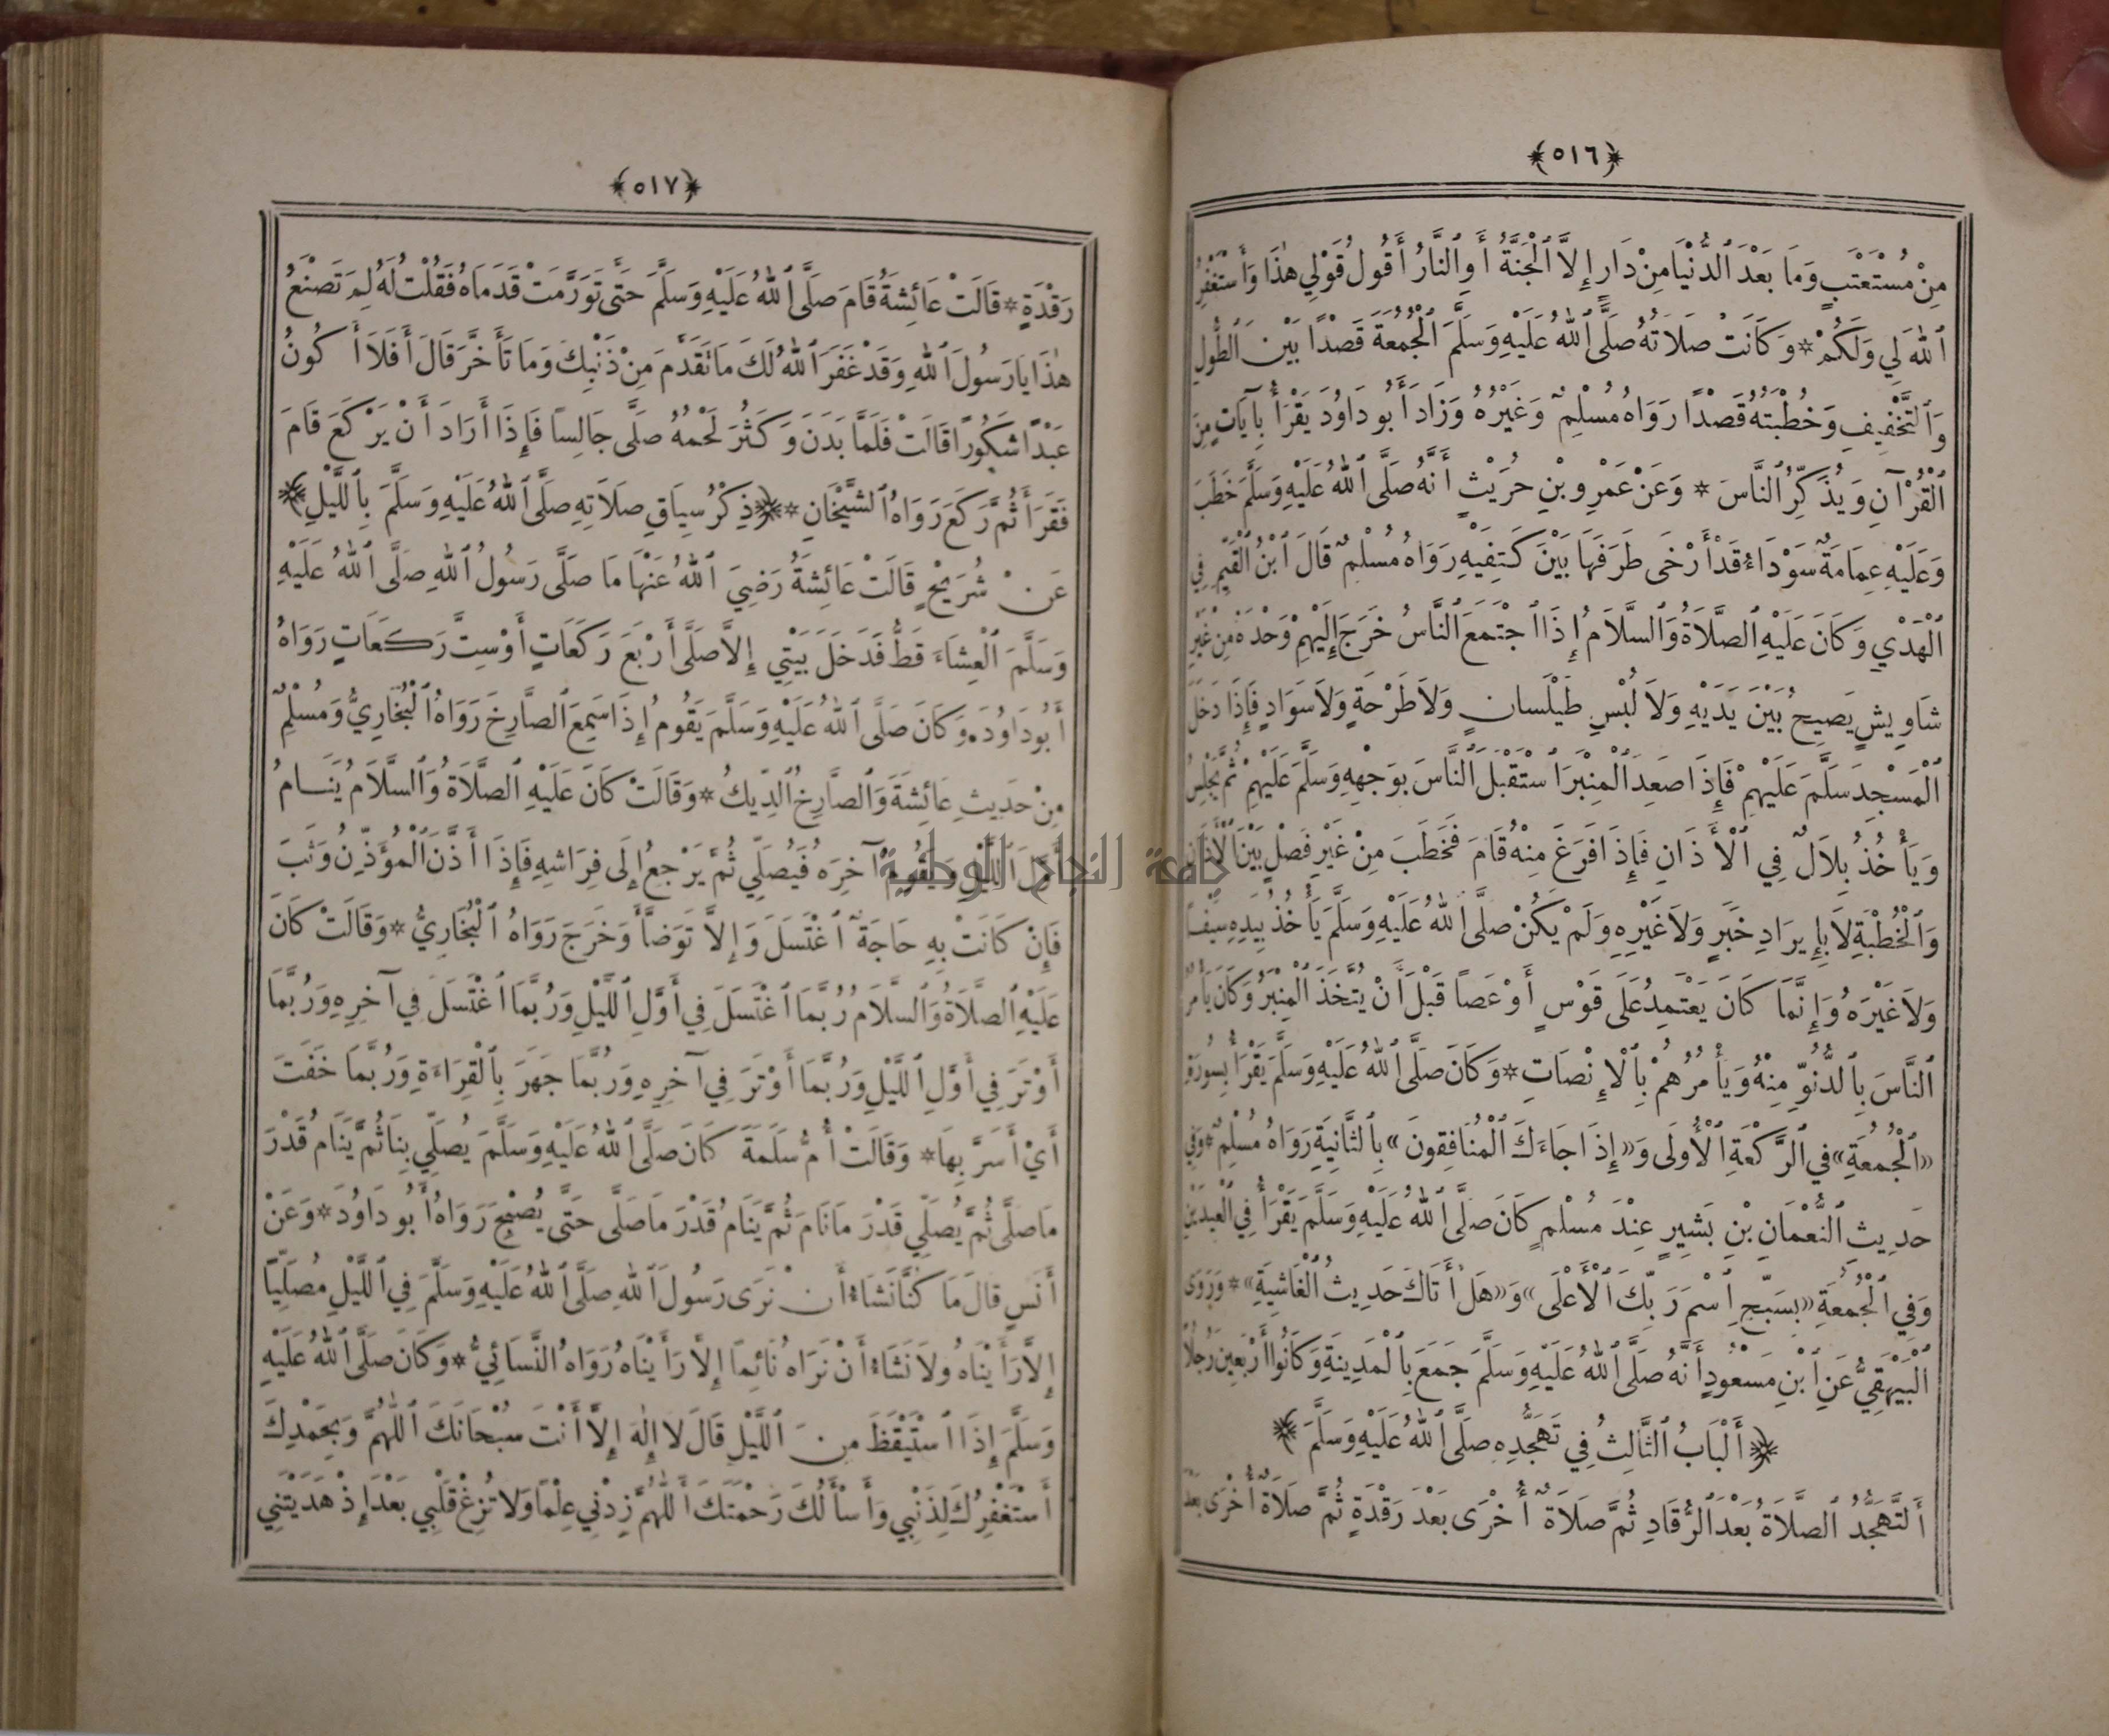 ﴿٥١٦﴾
مِنْ مُسْتَعْتَبٍ وَمَا بَعْدَ ٱلدُّنْيَا مِنْ دَارٍ إِلاَّ ٱلْجَنَّةُ أَوِ ٱلنَّارُ أَقُولُ قَوْلِي هٰذَا وَأَسْتَغْفِرُ
ٱللهَ لِي وَلَكُمْ * وَكَانَتْ صَلاَتُهُ صَلَّى ٱللهُ عَلَيْهِ وَسَلَّمَ ٱلْجُمُعَةَ قَصْدًا بَيْنَ ٱلطُّولِ
وَٱلتَّخْفِيفِ وَخُطْبَتُهُ قَصْدًا رَوَاهُ مُسْلِمٌ وَغَيْرُهُ وَزَادَ أَبُو دَاوُدَ يَقْرَأُ بِآيَاتٍ مِنَ
ٱلْقُرْآنِ وَيُذَكِّرُ ٱلنَّاسَ * وَعَنْ عَمْرِو بْنِ حُرَيْثٍ أَنَّهُ صَلَّى ٱللهُ عَلَيْهِ وَسَلَّمَ خَطَبَ
وَعَلَيْهِ عِمَامَةٌ سَوْدَاءُ قَدْ أَرْخَى طَرَفَهَا بَيْنَ كَتِفَيْهِ رَوَاهُ مُسْلِمٌ قَالَ ٱبْنُ ٱلْقَيِّمِ فِي
ٱلْهَدْيِ وَكَانَ عَلَيْهِ ٱلصَّلاَةُ وَٱلسَّلاَمُ إِذَا ٱجْتَمَعَ ٱلنَّاسُ خَرَجَ إِلَيْهِمْ وَحْدَهُ مِنْ غَيْرِ
شَاوِيشٍ يَصِيحُ بَيْنَ يَدَيْهِ وَلاَ لُبْسِ طَيْلَسَانٍ وَلاَ طَرْحَةٍ وَلاَ سَوَادٍ فَإِذَا دَخَلَ
ٱلْمَسْجِدَ سَلَّمَ عَلَيْهِمْ فَإِذَا صَعِدَ ٱلْمِنْبَرَ ٱسْتَقْبَلَ ٱلنَّاسَ بِوَجْهِهِ وَسَلَّمَ عَلَيْهِمْ ثُمَّ يَجْلِسُ
وَيَأْخُذُ بِلاَلٌ فِي ٱلْأَذَانِ فَإِذَا فَرَغَ مِنْهُ قَامَ فَخَطَبَ مِنْ غَيْرِ فَصْلٍ بَيْنَ ٱلْأَذَانِ
وَٱلْخُطْبَةِ لاَ بِإِيرَادِ خَبَرٍ وَلاَ غَيْرِهِ وَلَمْ يَكُنْ صَلَّى ٱللهُ عَلَيْهِ وَسَلَّمَ يَأْخُذُ بِيَدِهِ سَيْفًا
وَلاَ غَيْرَهُ وَإِنَّمَا كَانَ يَعْتَمِدُ عَلَى قَوْسٍ أَوْ عَصاً قَبْلَ أَنْ يُتَّخَذَ ٱلْمِنْبَرُ وَكَانَ يَأْمُرُ
ٱلنَّاسَ بِٱلدُّنُوِّ مِنْهُ وَيَأْمُرُهُمْ بِٱلْإِنْصَاتِ * وَكَانَ صَلَّى ٱللهُ عَلَيْهِ وَسَلَّمَ يَقْرَأُ بِسُورَةِ
«ٱلْجُمُعَةِ» فِي ٱلرَّكْعَةِ ٱلْأُولَى وَ«إِذَا جَاءَكَ ٱلْمُنَافِقُونَ» بِٱلثَّانِيَةِ رَوَاهُ مُسْلِمٌ * وَفِي
حَدِيثِ ٱلنُّعْمَانِ بْنِ بَشِيرٍ عِنْدَ مُسْلِمٍ كَانَ صَلَّى ٱللهُ عَلَيْهِ وَسَلَّمَ يَقْرَأُ فِي ٱلْعِيدَيْنِ
وَفِي ٱلْجُمُعَةِ «بِسَبِّحِ ٱسْمَ رَبِّكَ ٱلْأَعْلَى» وَ«هَلْ أَتَاكَ حَدِيثُ ٱلْغَاشِيَةِ» * وَرَوَى
ٱلْبَيْهَقِيُّ عَنِ ٱبْنِ مَسْعُودٍ أَنَّهُ صَلَّى ٱللهُ عَلَيْهِ وَسَلَّمَ جَمَعَ بِٱلْمَدِينَةِ وَكَانُوا أَرْبَعِينَ رَجُلاً
﴿أَلْبَابُ ٱلثَّالِثُ فِي تَهَجُّدِهِ صَلَّى ٱللهُ عَلَيْهِ وَسَلَّمَ﴾
أَلتَّهَجُّدُ ٱلصَّلاَةُ بَعْدَ ٱلرُّقَادِ ثُمَّ صَلاَةٌ أُخْرَى بَعْدَ رَقْدَةٍ ثُمَّ صَلاَةٌ أُخْرَى بَعْدَ
﴿٥١٧﴾
رَقْدَةٍ * قَالَتْ عَائِشَةُ قَامَ صَلَّى ٱللهُ عَلَيْهِ وَسَلَّمَ حَتَّى تَوَرَّمَتْ قَدَمَاهُ فَقُلْتُ لَهُ لِمَ تَصْنَعُ
هٰذَا يَا رَسُولَ ٱللهِ وَقَدْ غَفَرَ ٱللهُ لَكَ مَا تَقَدَّمَ مِنْ ذَنْبِكَ وَمَا تَأَخَّرَ قَالَ أَفَلاَ أَكُونُ
عَبْدًا شَكُورًا قَالَتْ فَلَمَّا بَدَنَ وَكَثُرَ لَحْمُهُ صَلَّى جَالِساً فَإِذَا أَرَادَ أَنْ يَرْكَعَ قَامَ
فَقَرَأَ ثُمَّ رَكَعَ رَوَاهُ ٱلشَّيْخَانِ * ﴿ذِكْرُ سِيَاقِ صَلاَتِهِ صَلَّى ٱللهُ عَلَيْهِ وَسَلَّمَ بِٱللَّيْلِ﴾
عَنْ شُرَيْحٍ قَالَتْ عَائِشَةُ رَضِيَ ٱللهُ عَنْهَا مَا صَلَّى رَسُولُ ٱللهِ صَلَّى ٱللهُ عَلَيْهِ
وَسَلَّمَ ٱلْعِشَاءَ قَطُّ فَدَخَلَ بَيْتِي إِلاَّ صَلَّى أَرْبَعَ رَكَعَاتٍ أَوْ سِتَّ رَكَعَاتٍ رَوَاهُ
أَبُو دَاوُدَ * وَكَانَ صَلَّى ٱللهُ عَلَيْهِ وَسَلَّمَ يَقُومُ إِذَا سَمِعَ ٱلصَّارِخَ رَوَاهُ ٱلْبُخَارِيُّ وَمُسْلِمٌ
مِنْ حَدِيثِ عَائِشَةَ وَٱلصَّارِخُ ٱلدِّيكُ * وَقَالَتْ كَانَ عَلَيْهِ ٱلصَّلاَةُ وَٱلسَّلاَمُ يَنَامُ
أَوَّلَ ٱللَّيْلِ وَيَقُومُ آخِرَهُ فَيُصَلِّي ثُمَّ يَرْجِعُ إِلَى فِرَاشِهِ فَإِذَا أَذَّنَ ٱلْمُؤَذِّنُ وَثَبَ
فَإِنْ كَانَتْ بِهِ حَاجَةٌ ٱغْتَسَلَ وَإِلاَّ تَوَضَّأَ وَخَرَجَ رَوَاهُ ٱلْبُخَارِيُّ * وَقَالَتْ كَانَ
عَلَيْهِ ٱلصَّلاَةُ وَٱلسَّلاَمُ رُبَّمَا ٱغْتَسَلَ فِي أَوَّلِ ٱللَّيْلِ وَرُبَّمَا ٱغْتَسَلَ فِي آخِرِهِ وَرُبَّمَا
أَوْتَرَ فِي أَوَّلِ ٱللَّيْلِ وَرُبَّمَا أَوْتَرَ فِي آخِرِهِ وَرُبَّمَا جَهَرَ بِٱلْقِرَاءَةِ وَرُبَّمَا خَفَتَ
أَيْ أَسَرَّ بِهَا * وَقَالَتْ أُمُّ سَلَمَةَ كَانَ صَلَّى ٱللهُ عَلَيْهِ وَسَلَّمَ يُصَلِّي بِنَا ثُمَّ يَنَامُ قَدْرَ
مَا صَلَّى ثُمَّ يُصَلِّي قَدْرَ مَا نَامَ ثُمَّ يَنَامُ قَدْرَ مَا صَلَّى حَتَّى يُصْبِحَ رَوَاهُ أَبُو دَاوُدَ * وَعَنْ
أَنَسٍ قَالَ مَا كُنَّا نَشَاءُ أَنْ نَرَى رَسُولَ ٱللهِ صَلَّى ٱللهُ عَلَيْهِ وَسَلَّمَ فِي ٱللَّيْلِ مُصَلِّيًا
إِلاَّ رَأَيْنَاهُ وَلاَ نَشَاءُ أَنْ نَرَاهُ نَائِمًا إِلاَّ رَأَيْنَاهُ رَوَاهُ ٱلنَّسَائِيُّ * وَكَانَ صَلَّى ٱللهُ عَلَيْهِ
وَسَلَّمَ إِذَا ٱسْتَيْقَظَ مِنَ ٱللَّيْلِ قَالَ لاَ إِلٰهَ إِلاَّ أَنْتَ سُبْحَانَكَ ٱللّٰهُمَّ وَبِحَمْدِكَ
أَسْتَغْفِرُكَ لِذَنْبِي وَأَسْأَلُكَ رَحْمَتَكَ أَللّٰهُمَّ زِدْنِي عِلْمًا وَلاَ تُزِغْ قَلْبِي بَعْدَ إِذْ هَدَيْتَنِي
جامعة النجاح الوطنية